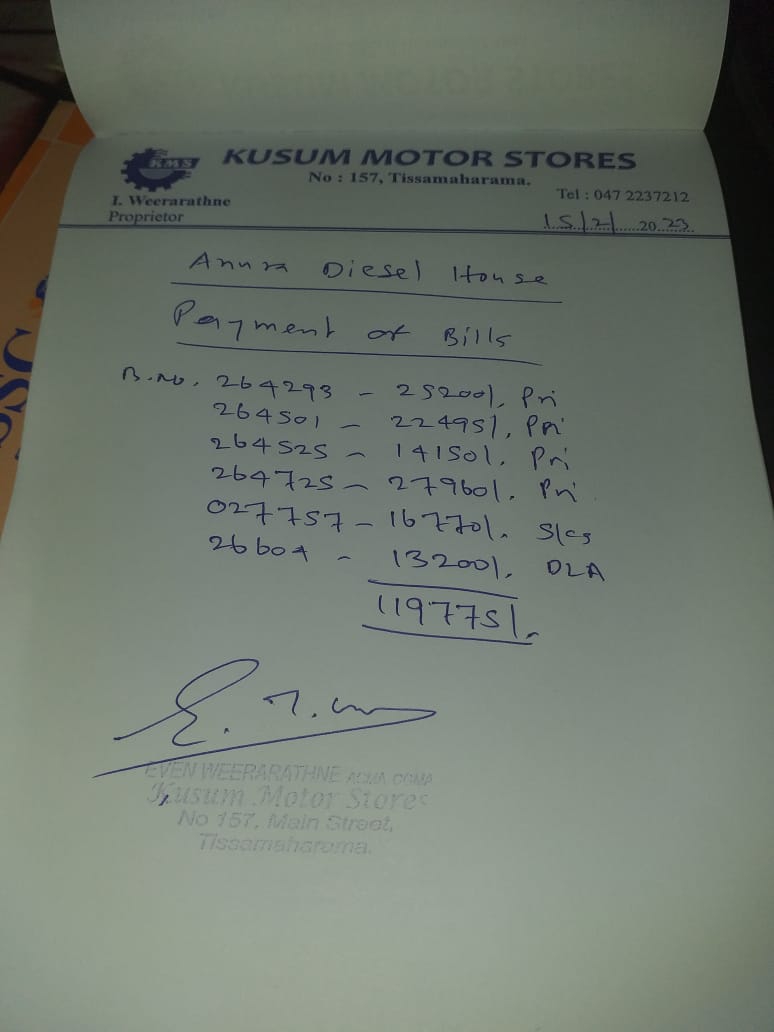 KMS
KUSUM MOTOR STORES
No : 157, Tissamaharama.
I. Weerarathne
Proprietor
Tel : 047 2237212
15/2/ 2023
Anura Diesel House
Payment of Bills
B.No. 264293 - 25200/. Pri
264501 - 22495/. Pri
264525 - 14150/. Pri
264725 - 27960/. Pri
027757 - 16770/. S/cs
26604 - 13200/. DLA
119775/.
EVEN WEERARATHNE ACMA CGMA
Kusum Motor Stores
No 157, Main Street,
Tissamaharama.